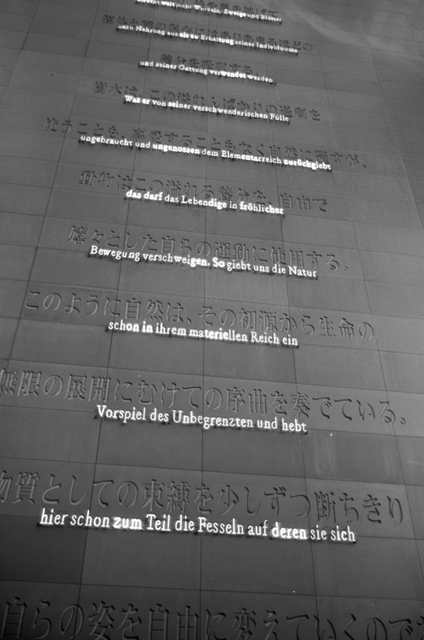 weit mehr Wurzeln, Zweige und Blätter
nach Nahrung aus als zu Erhaltung seines Individuums
養分を吸収する。
und seiner Gattung verwendet werden.
樹木は、この溢れんばかりの過剰を
Was er von seiner verschwenderischen Fülle
使うことも、享受することもなく自然に還すが、
ungebraucht und ungenossen dem Elementarreich zurückgiebt
動物はこの溢れる養分を、自由で
das darf das Lebendige in fröhlicher
嬉々とした自らの運動に使用する。
Bewegung verschweigen. So giebt uns die Natur
このように自然は、その初源から生命の
schon in ihrem materiellen Reich ein
無限の展開にむけての序曲を奏でている。
Vorspiel des Unbegrenzten und hebt
物質としての束縛を少しずつ断ちきり
hier schon zum Teil die Fesseln auf deren sie sich
自らの姿を自由に変えていくので